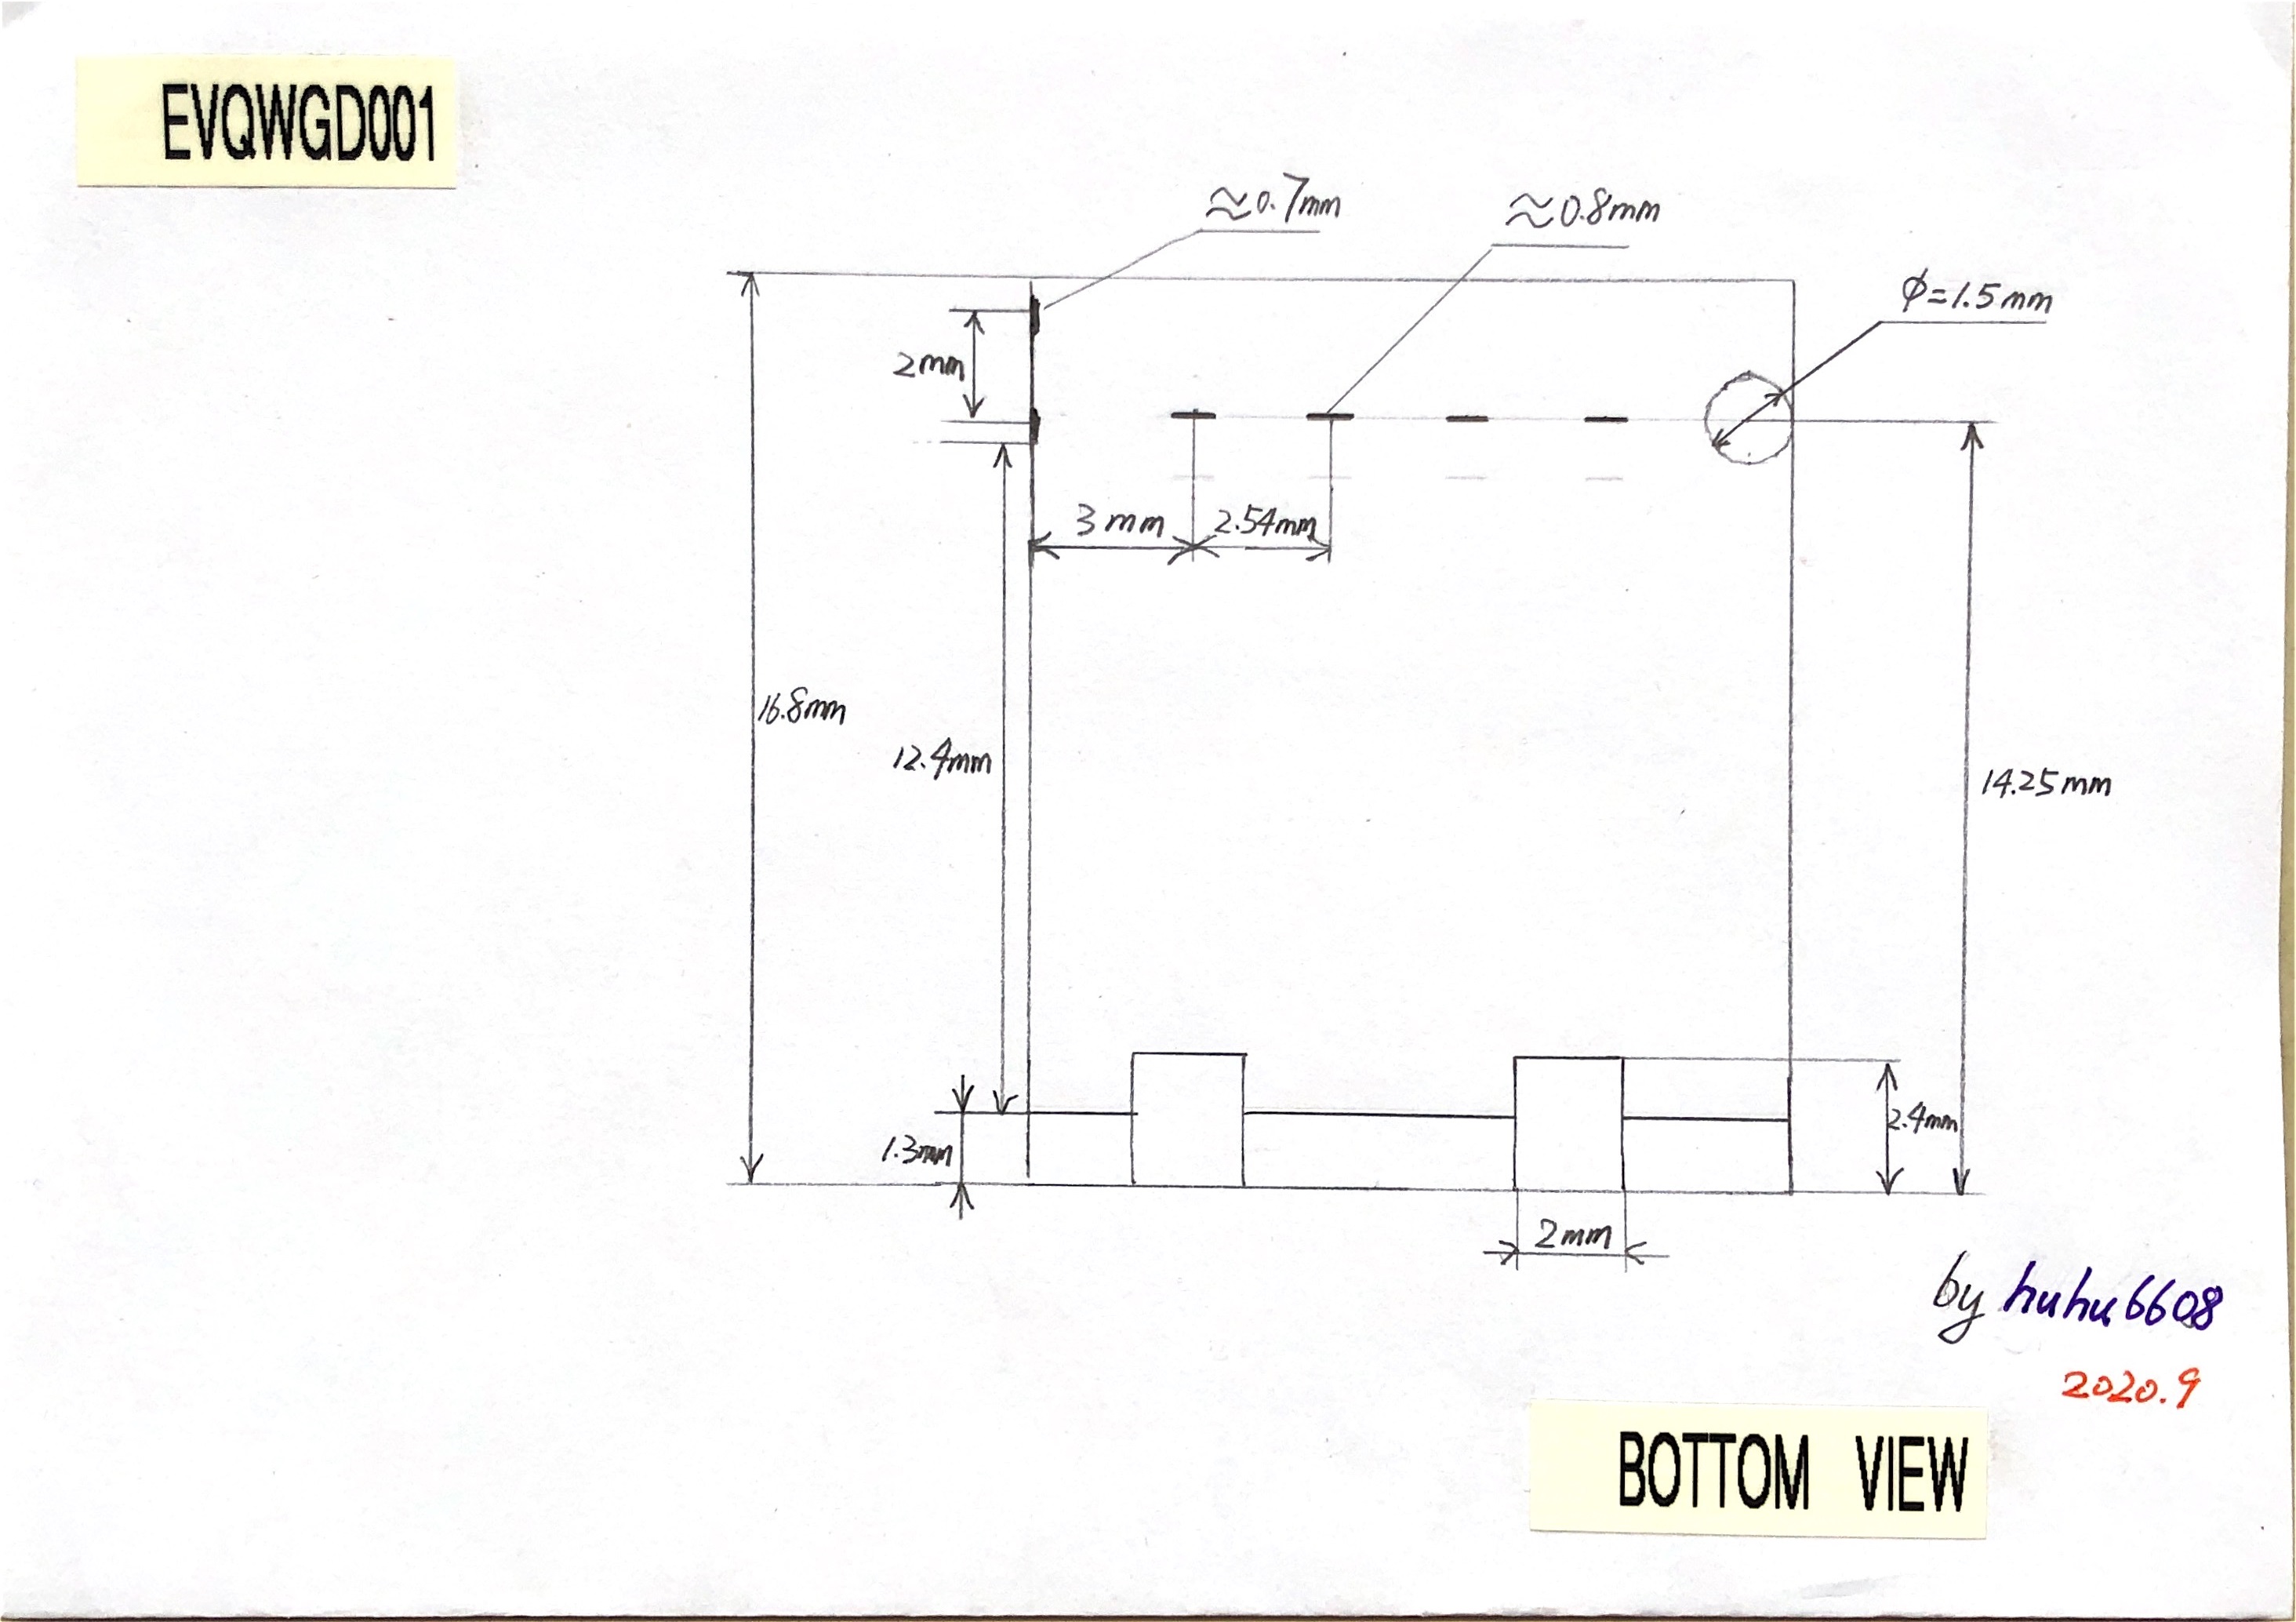 EVQWGD001
≈0.7mm
≈0.8mm
ϕ=1.5mm
2mm
3mm
2.54mm
16.8mm
12.4mm
14.25mm
1.3mm
2.4mm
2mm
by huhu6608
2020.9
BOTTOM VIEW